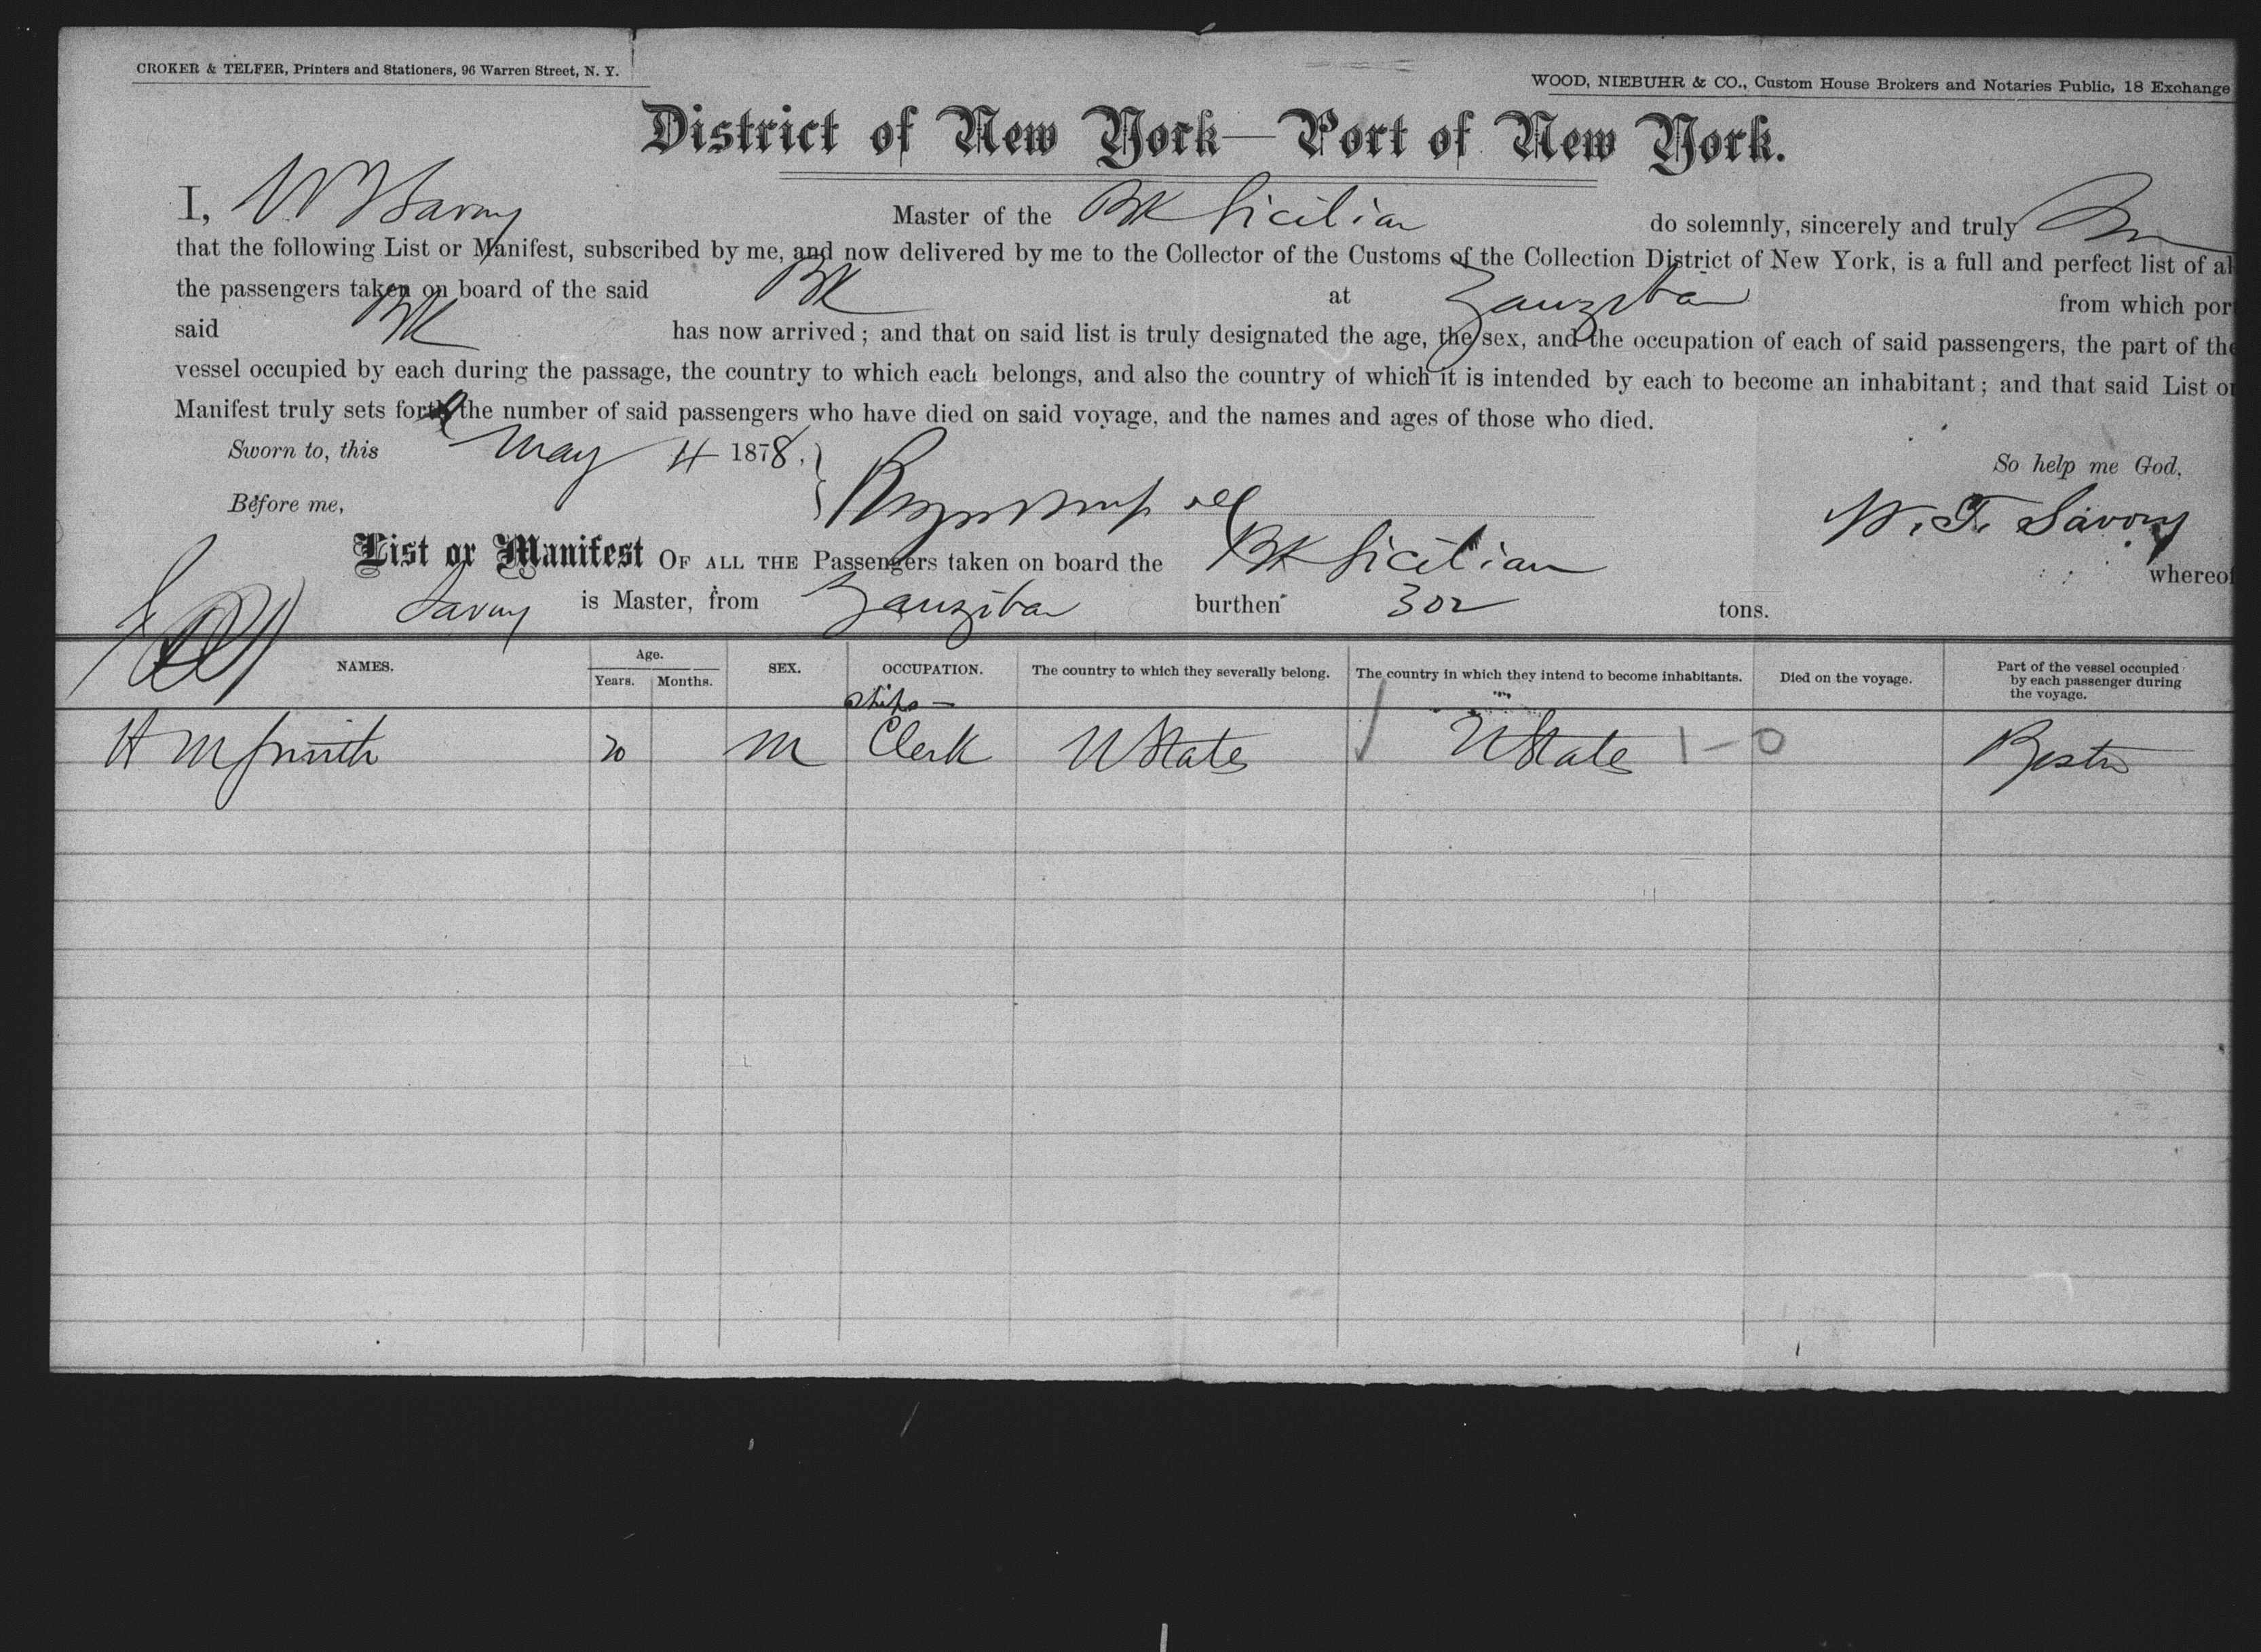 CROKER & TELFER, Printers and Stationers, 96 Warren Street, N. Y.
WOOD, NIEBUHR & CO., Custom House Brokers and Notaries Public, 18 Exchange
District of New York—Port of New York.
I, W F Savory Master of the Bk Sicilian do solemnly, sincerely and truly
that the following List or Manifest, subscribed by me, and now delivered by me to the Collector of the Customs of the Collection District of New York, is a full and perfect list of al
the passengers taken on board of the said Bk at Zanzibar from which por
said Bk has now arrived; and that on said list is truly designated the age, the sex, and the occupation of each of said passengers, the part of the
vessel occupied by each during the passage, the country to which each belongs, and also the country of which it is intended by each to become an inhabitant; and that said List or
Manifest truly sets forth the number of said passengers who have died on said voyage, and the names and ages of those who died.
Sworn to, this May 4 1878. So help me God,
Before me, W. F. Savory
List or Manifest OF ALL THE Passengers taken on board the Bk Sicilian whereof
Savory is Master, from Zanzibar burthen 302 tons.
NAMES. Age. Years. Months. SEX. OCCUPATION. The country to which they severally belong. The country in which they intend to become inhabitants. Died on the voyage. Part of the vessel occupied by each passenger during the voyage.
Ships
H M Smith 20 M Clerk U States U States 1-0